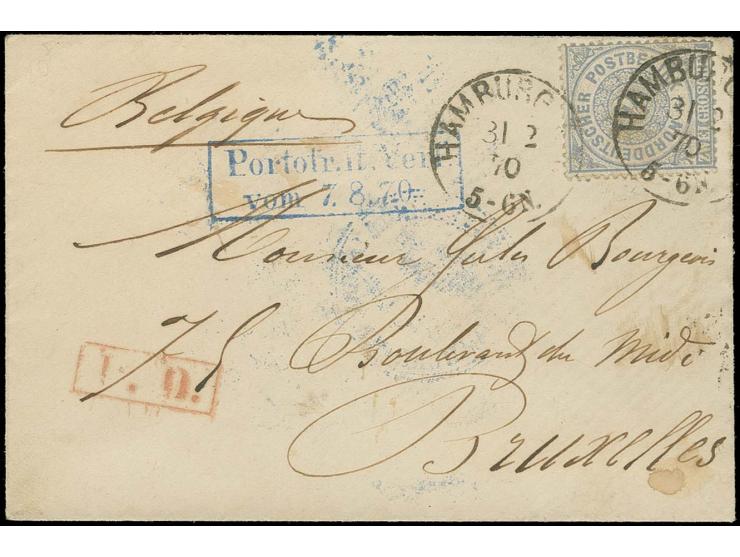 Belgique
HAMBURG
31 2
70
5-6N.
NORDDEUTSCHER POSTBEZIRK
HAMBURG
31 2
70
5-6N.
Portofr. lt. Verf.
vom 7. 8. 70.
Monsieur Jules Bourgeois
75 Boulevard du Midi
Bruxelles
P. D.